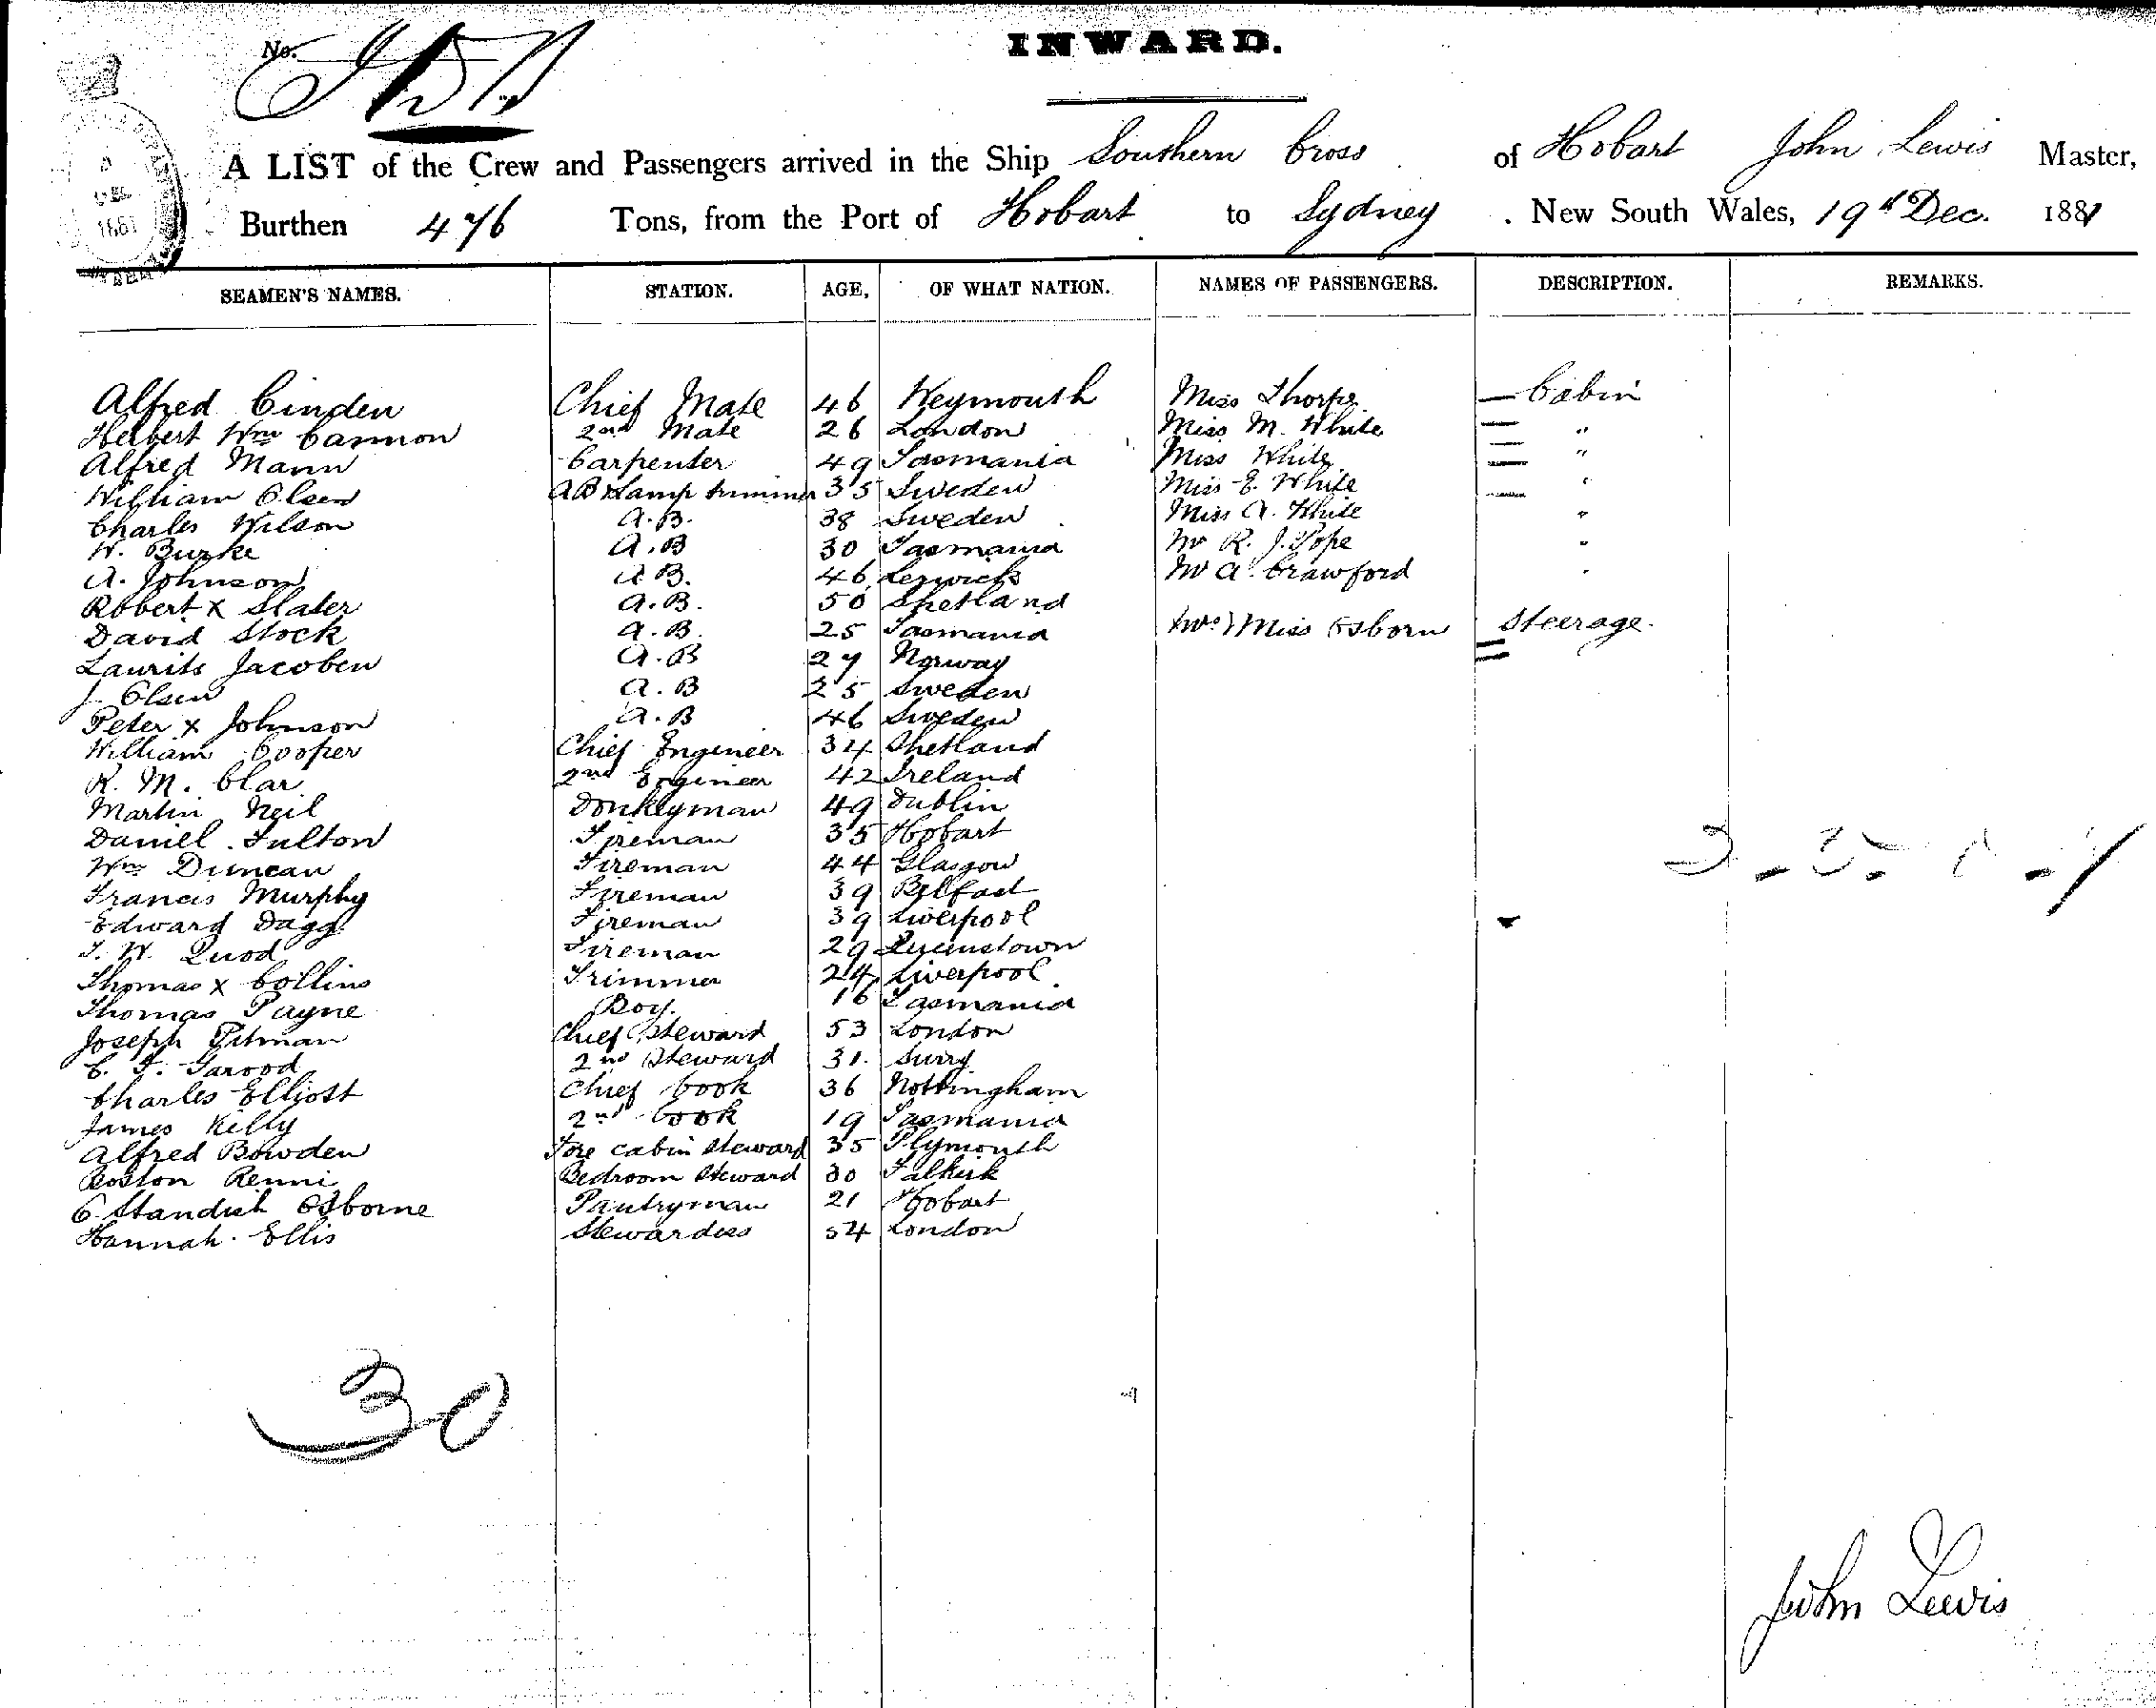 No.
INWARD.
A LIST of the Crew and Passengers arrived in the Ship Southern Cross of Hobart John Lewis Master,
Burthen 476 Tons, from the Port of Hobart to Sydney . New South Wales, 19th Dec. 1881
SEAMEN'S NAMES. STATION. AGE, OF WHAT NATION. NAMES OF PASSENGERS. DESCRIPTION. REMARKS.
Alfred Cinden Chief Mate 46 Weymouth Miss Thorpe — Cabin
Herbert Wm Cannon 2nd Mate 26 London Miss M. White — "
Alfred Mann Carpenter 49 Tasmania Miss White — "
William Olsen AB & Lamp trimmer 35 Sweden Miss E. White — "
Charles Wilson A.B. 38 Sweden Miss A. White "
W. Burke A.B 30 Tasmania Mr R. J. Pope "
A. Johnson A B. 46 Lerwick Mr A. Crawford "
Robert X Slater A.B. 50 Shetland
David Stock A.B. 25 Tasmania Miss Osborn Steerage.
Laurits Jacoben A.B 27 Norway
J. Olsen A.B 25 Sweden
Peter X Johnson A.B 46 Sweden
William Cooper Chief Engineer 34 Shetland
R. M. Clar 2nd Engineer 42 Ireland
Martin Neil Donkeyman 49 Dublin
Daniel Fulton Fireman 35 Hobart
Wm Duncan Fireman 44 Glasgow
Francis Murphy Fireman 39 Belfast
Edward Dagg Fireman 39 Liverpool
T. W. Quod Fireman 29 Queenstown
Thomas X Collins Trimmer 24 Liverpool
Thomas Payne Boy. 16 Tasmania
Joseph Pitman Chief Steward 53 London
C. F. Garood 2nd Steward 31. Surry
Charles Elliott Chief Cook 36 Nottingham
James Kelly 2nd Cook 19 Tasmania
Alfred Bowden Fore cabin Steward 35 Plymouth
Boston Renni Bedroom Steward 30 Falkirk
C Standish Osborne Pantryman 21 Hobart
Hannah Ellis Stewardess 54 London
30
John Lewis